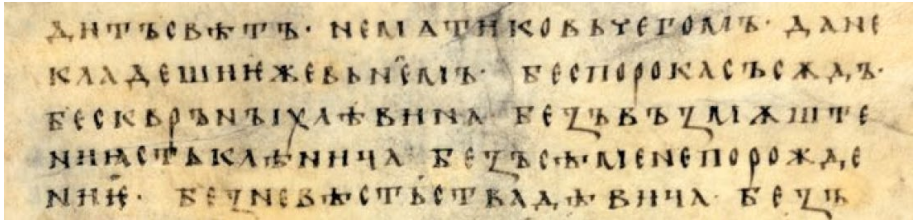 дитъсвѣтъ· нематиковьчегомъ· дане
кладешинѥжевьнемъ· беспорокасъсѫдъ·
бесквръныхлѣвина беꙁъвъꙁмѫште
ниꙗстькланица беꙁъсѣменепорожде
ниѥ· беꙁневѣстьствадѣвица· беꙁъ